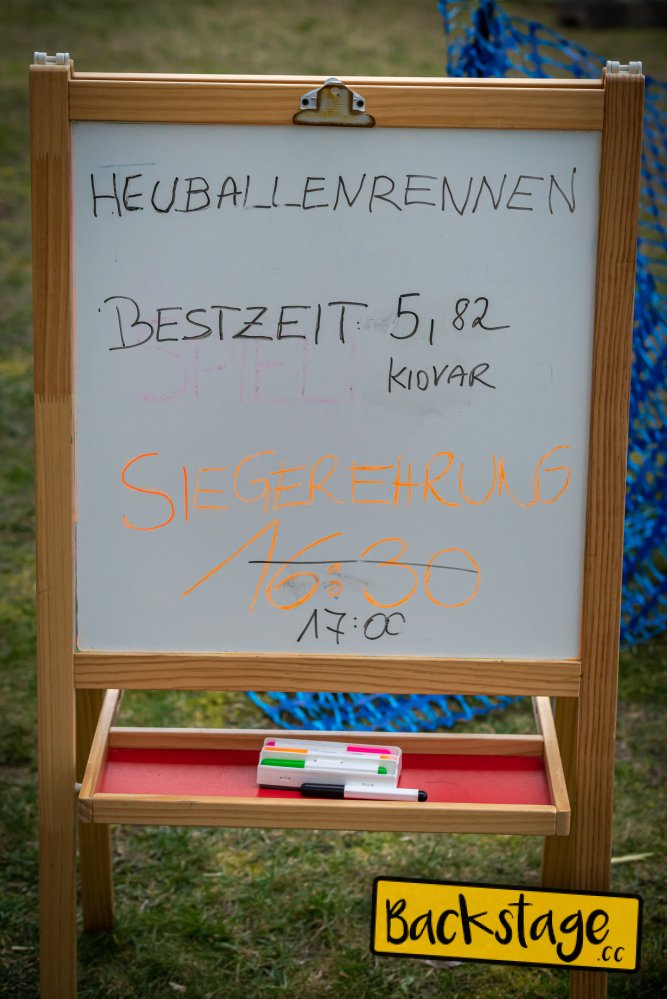 HEUBALLENRENNEN
BESTZEIT: 5,82
KIOVAR
SPIEL
SIEGEREHRUNG
16:30
17:00
Backstage.cc